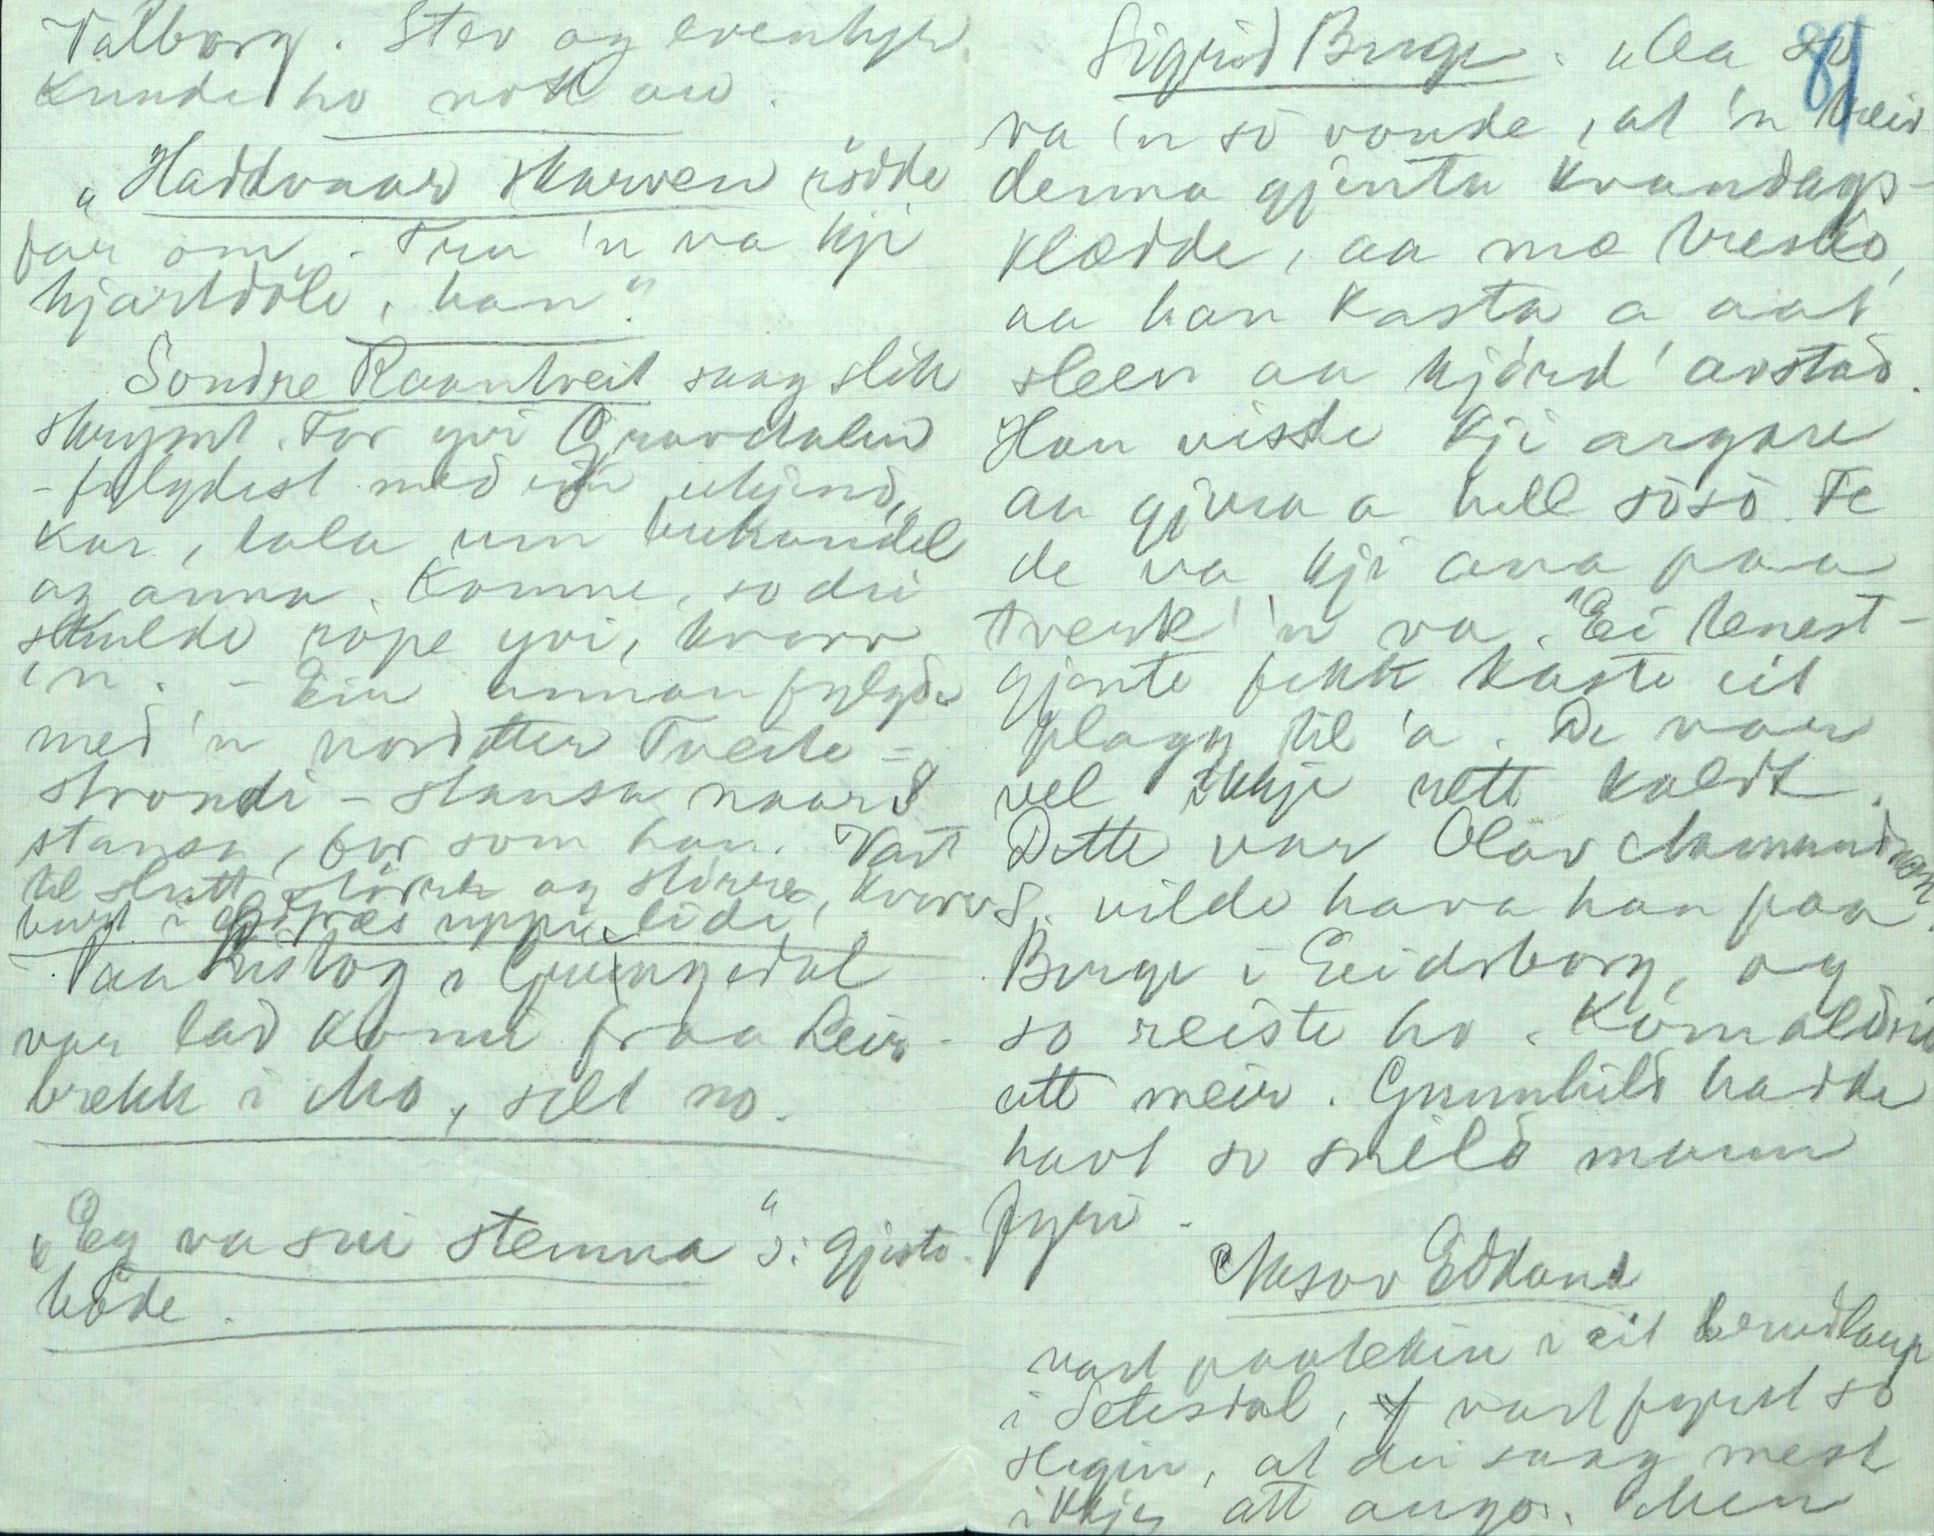 Valborg. Stev og eventyr
kunde ho nokk au.
"Haddvaar skarven rödde
far om. - Tru 'n va kji
hjartdöle, han".
Sondre Raantveit saag slik
skrymt. For yvi Gravdalen
- fylgdest med ein ukjend
kar, tala um bukandel
og anna. Komne, so dei
skulde röpe yvi, kvarv
'n. - Ein annan fylgde
med 'n nordetter Tveite-
strondi - stansa naar S
stansa, for som han. Vart
til slutt större og större, kvarv
burt i uppi lidi
Paa Kistog i Grungedal
var lad komi fraa Leir-
brekk i Mo, selt no.
"Eg va sui stemna" i gjeste-
böde.
81
Sigrid Berge. "Aa so
va 'n so vonde, at 'n treiv
denna gjenta kvandags-
klædde, aa mæ bresko,
aa han kasta a aat
sleen aa kjörd' avstad.
Han visste kji argare
aa gjera a hell söso. Fe
de va kji ana paa
tverk 'n va." Ei tenest-
gjente fekk kaste eit
plagg til 'a. De var
vel ikkje rett kaldt.
Dette var Olav Aamundson
S. vilde hava han paa
Berge i Eidsborg, og
so reiste ho. Kom aldri
att meir. Gunnhild hadde
havt so snild mann
fyrr.
Aasov Edland
vart paateken i eit brudlaup
i Setesdal, vart fyrst so
slegin, at dei saag mest
ikkje att augo. Men